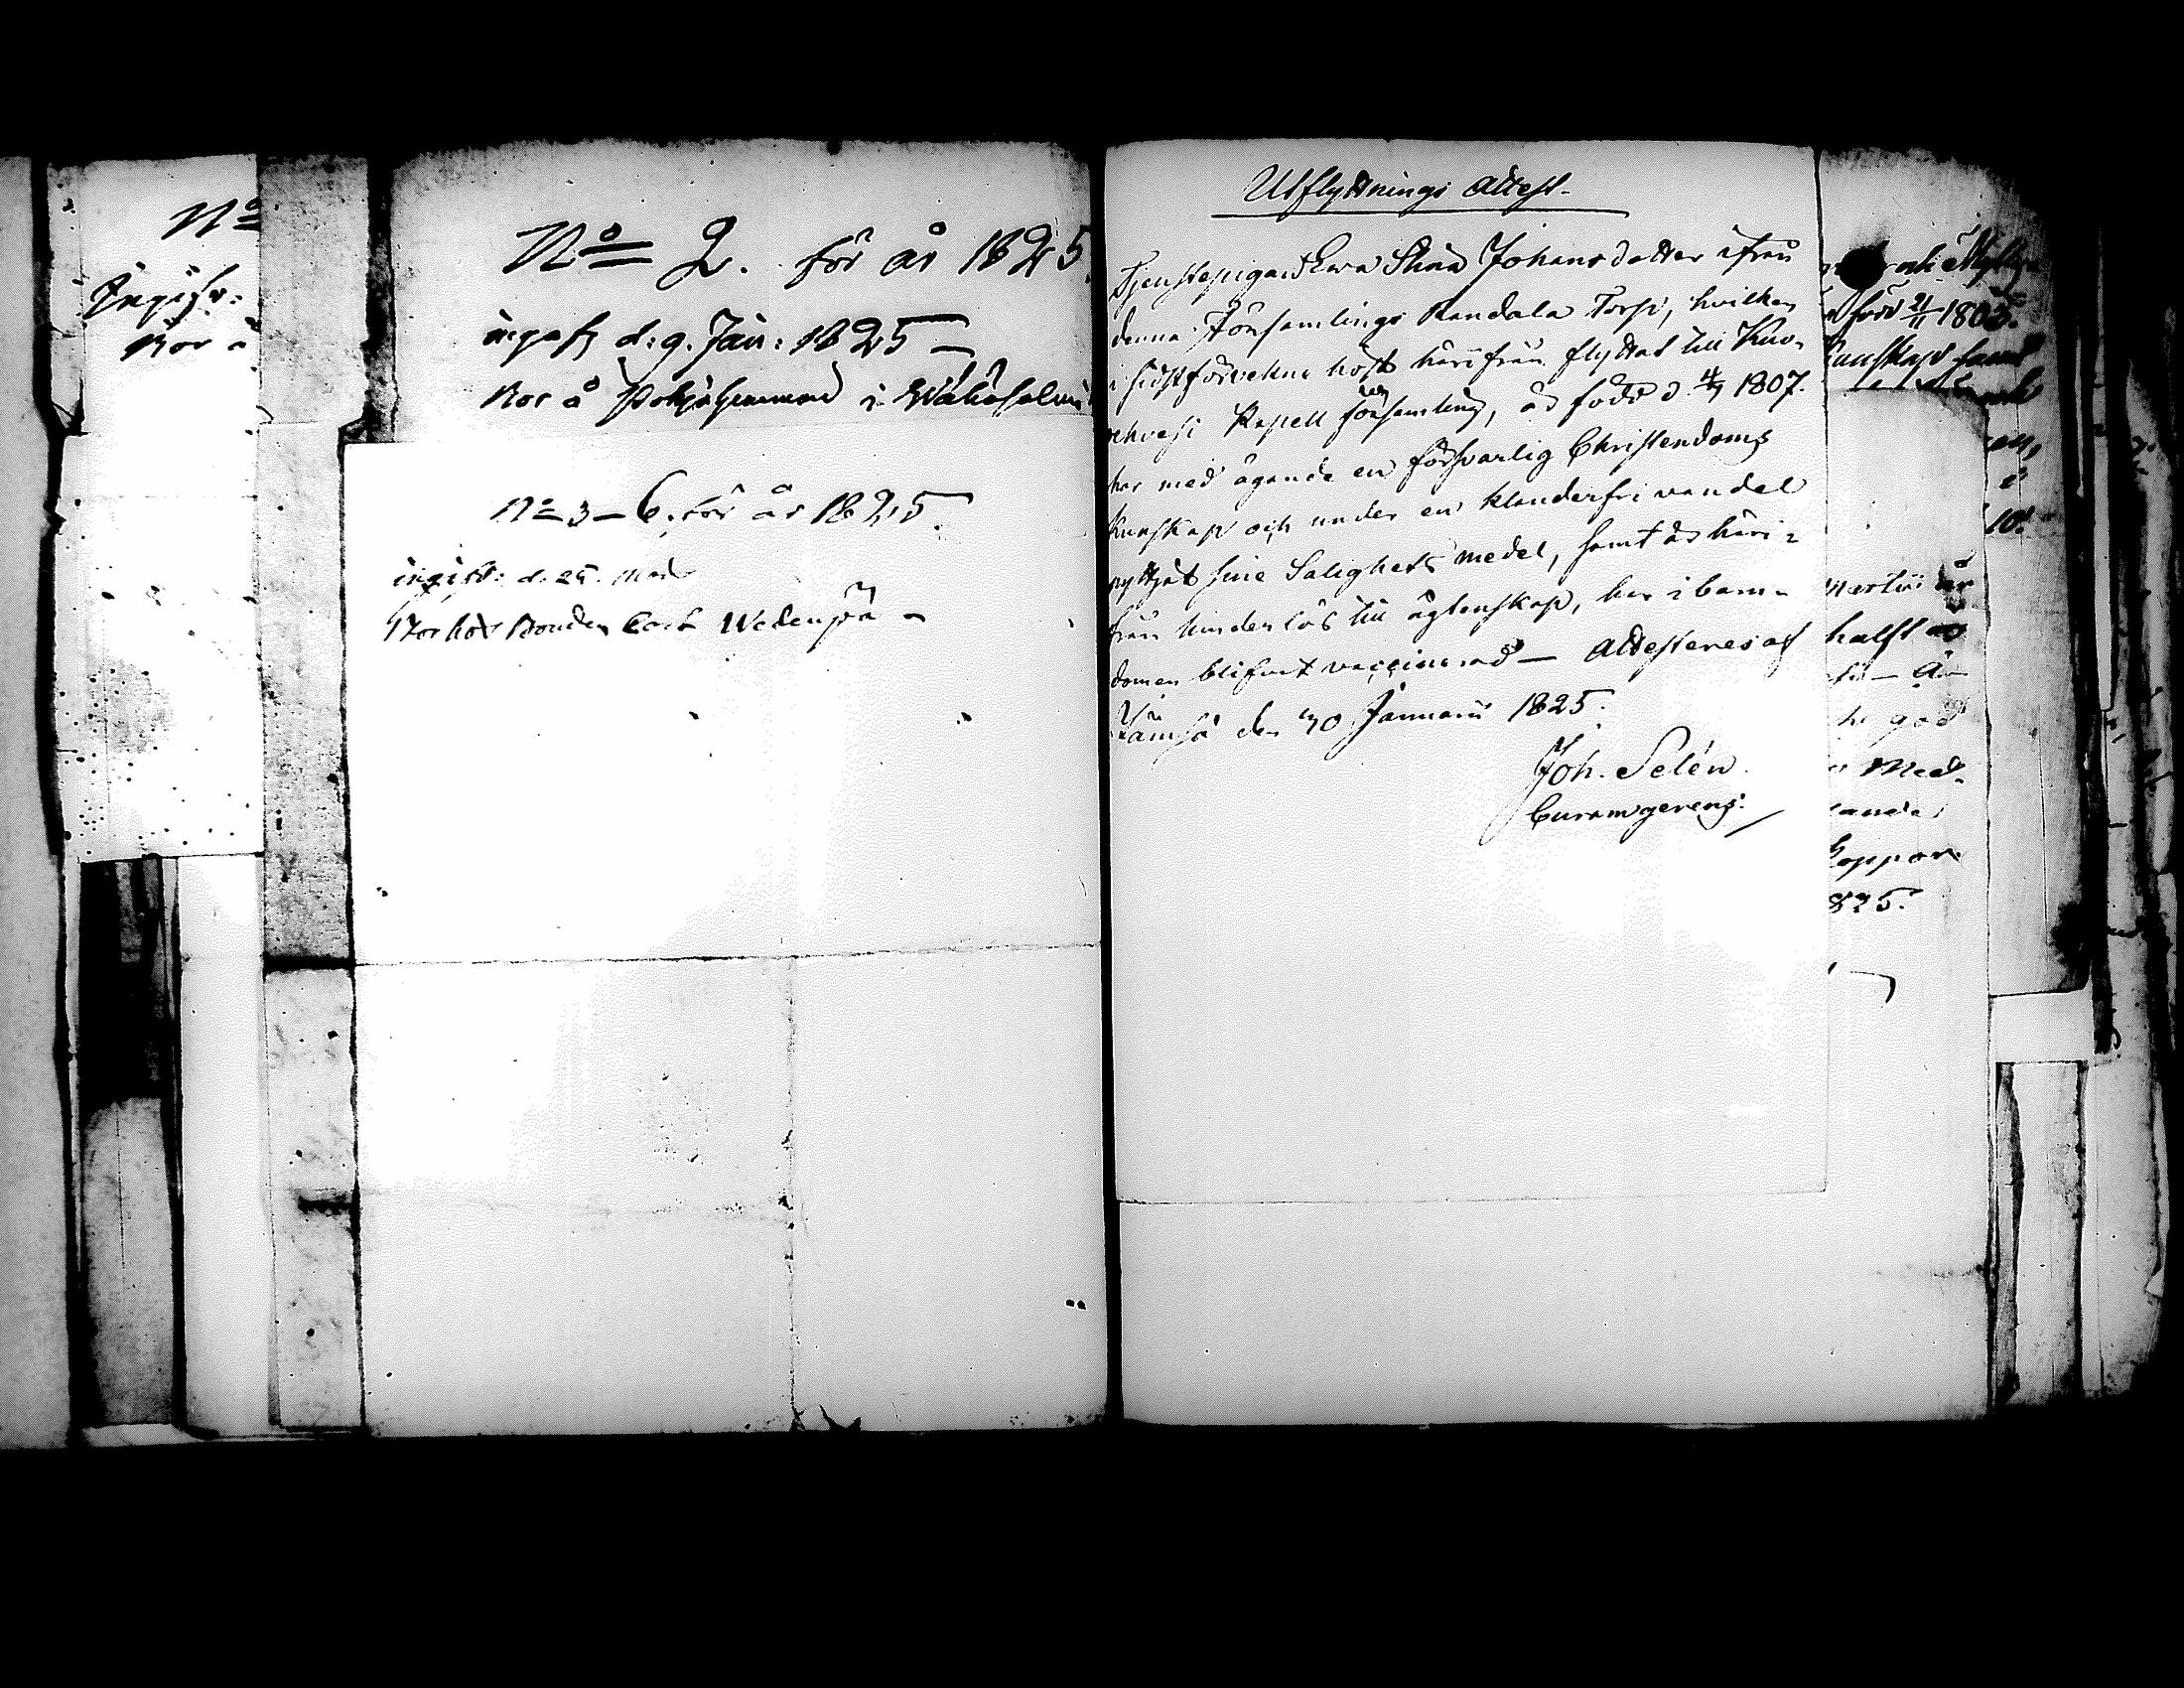 No
Ingifv:
Bor å
No 2. för år 1825
ingafs d: 9. Jan: 1825
Bor å Pohjahemman i
No 3–6. för år 1825.
ingift: d. 25.
Bor hos Bonden Carl
Utflyttnings Attest.
Tjenstepigan Ewa Stina Johansdotter ifrån
denna Församlings Kandala Torp, hvilken
i sidstförvekne höst härifrån flyttat till Kuo-
Kapell församling, är född d. 4/9 1807.
har med ägande en försvarlig Christendoms
kunskap och under en klanderfri vandel
nyttjat sine Salighets medel, samt är häri-
från hinderlös till äglenskap, har i barn-
domen blifvit vaccinerad — Attesteres af
Jämsä den 30 Januarii 1825.
Joh. Selén.
Curam gerens.
född 21/11 1803.
kunskap samt
10.
Martii år
halft
god
Med-
ande
Koppor.
825.